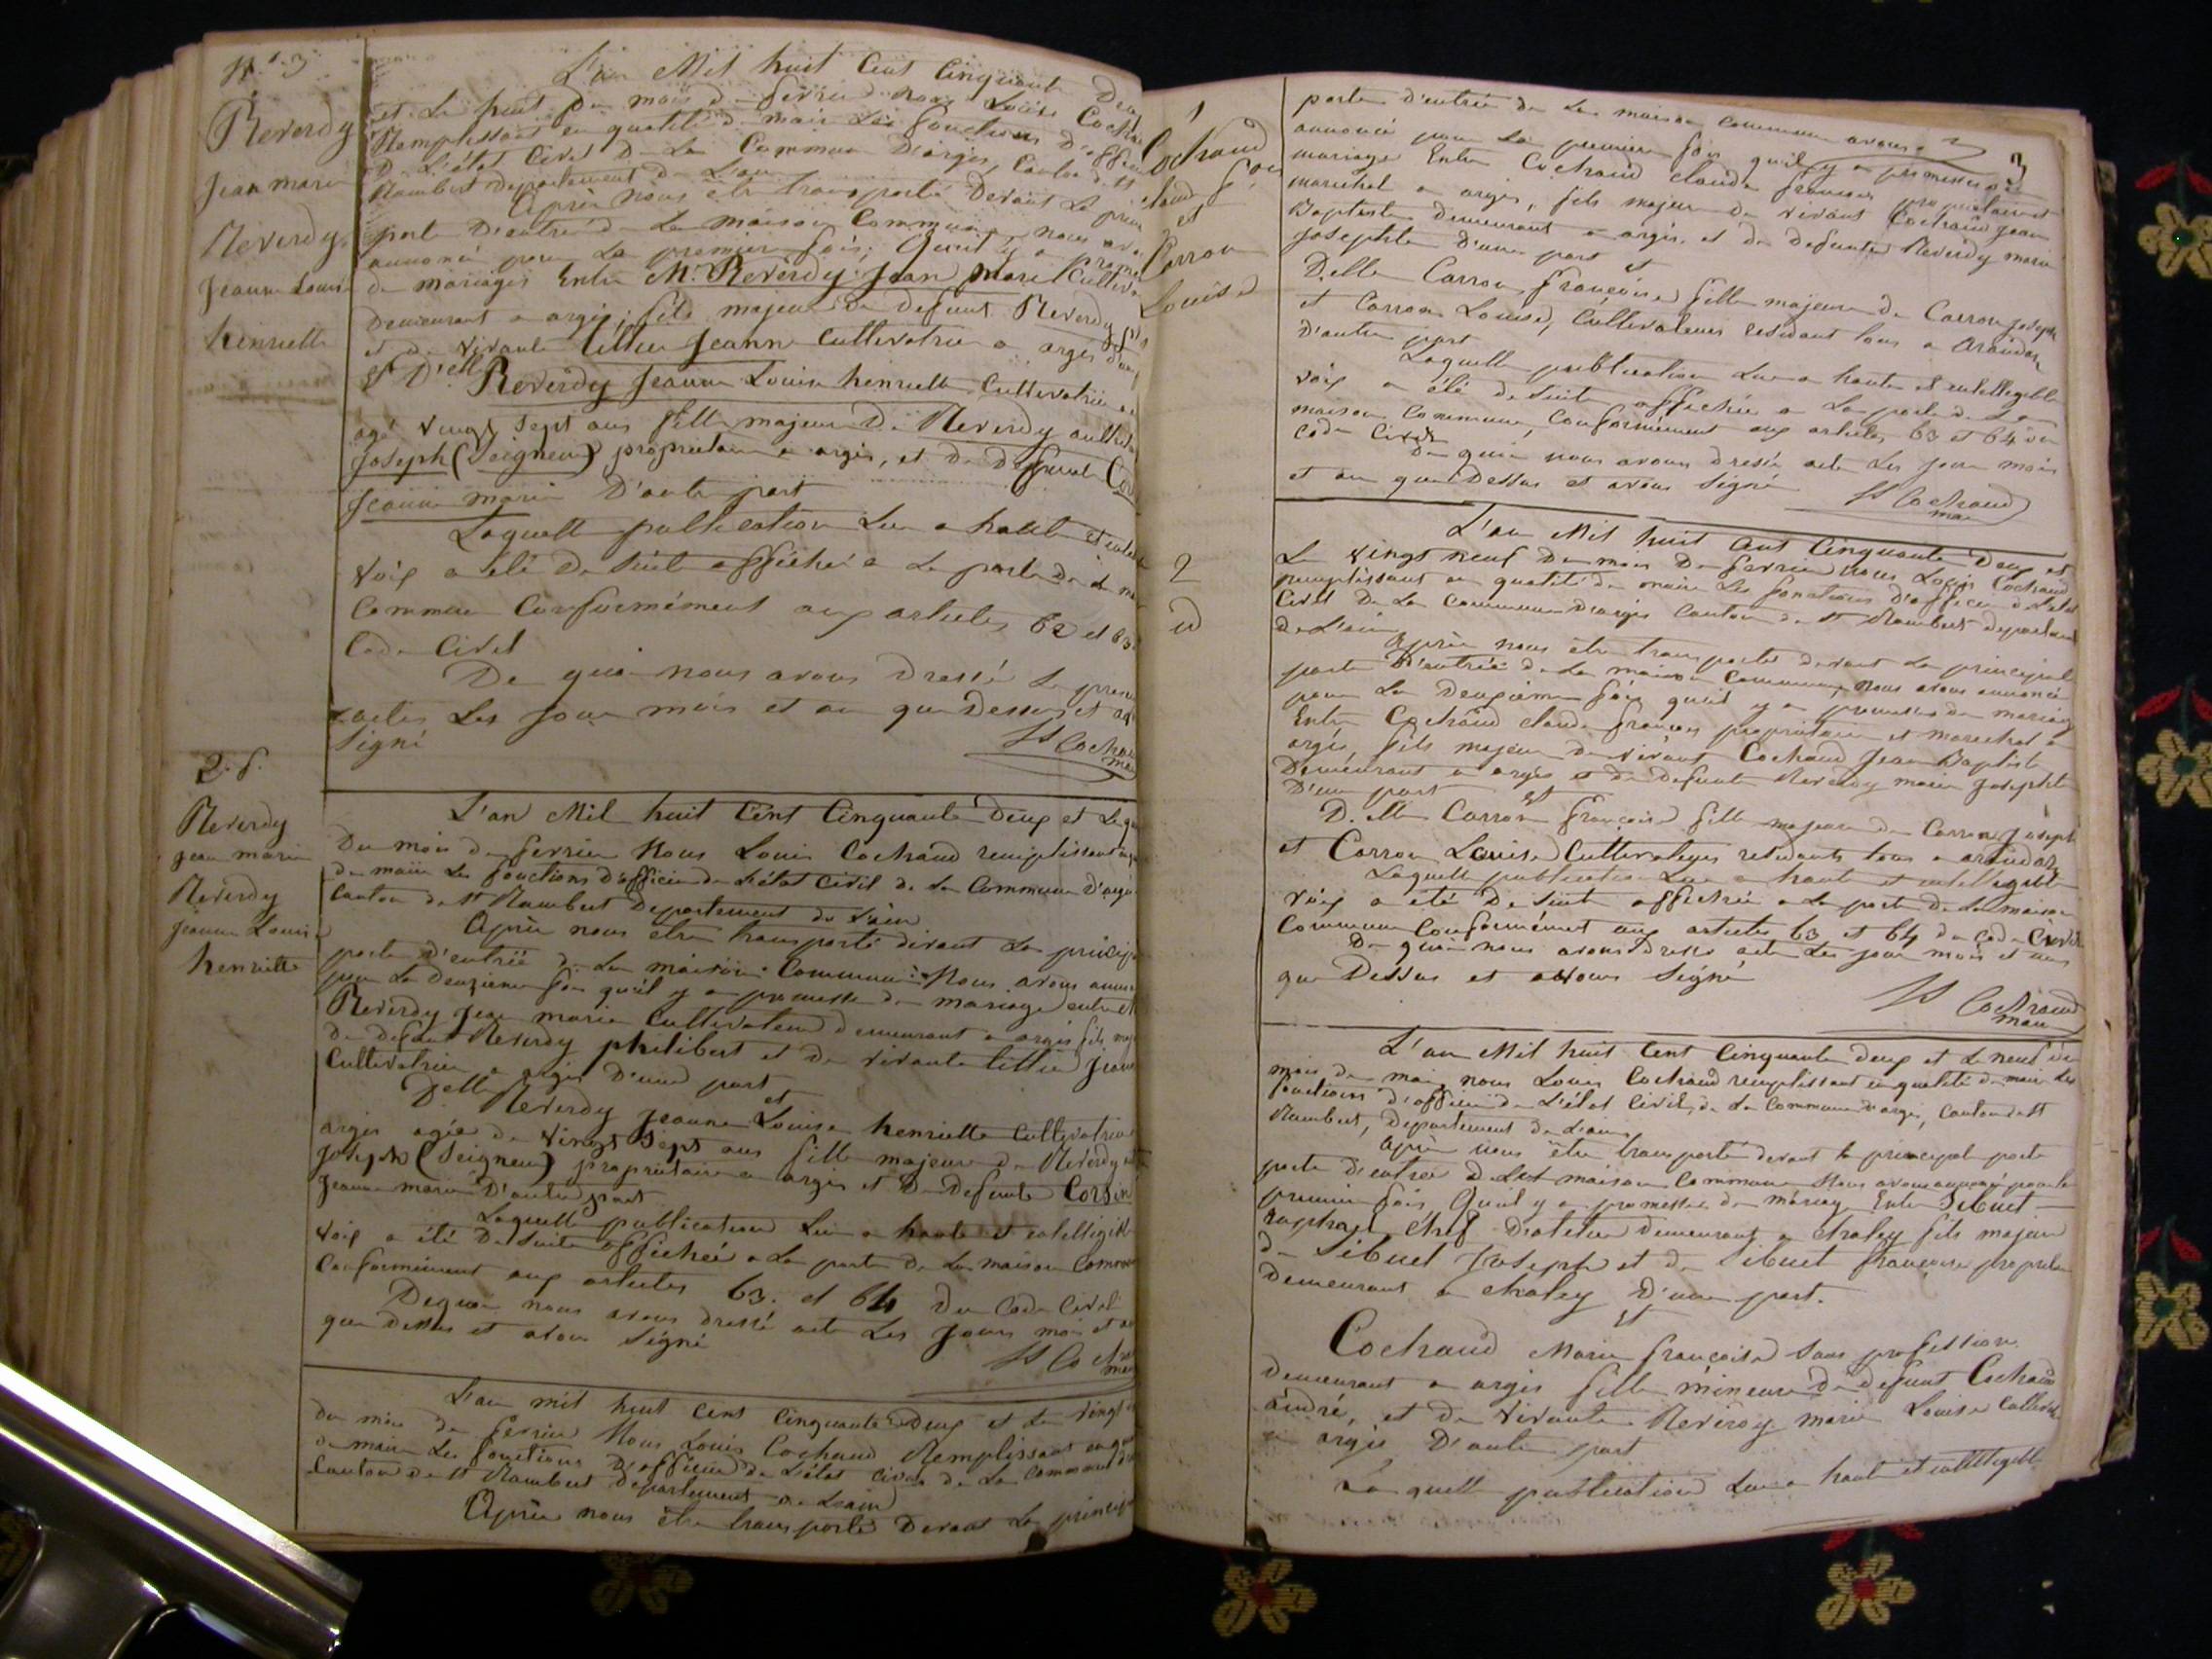 N° 3
Reverdy
Jean marie
Reverdy
Jeanne Louise
henriette
L'an Mil huit Cent Cinquante Deu
et Le huit Du mois de fevrier nous Louis Cochau
Remplissant en qualité de maire Les fonctions D'offici
De L'état Civil De La Commune D'argis, Canton de St
Rambert Departement de L'ain
Après nous être transporté Devant La prin
porte D'entré de La maison Commune, nous avo
annoncé pour La premier fois; Qu'il y a Prome
de mariages Entre Mr. Reverdy Jean marie Cultiva
Demeurant a argis, fils majeur De defunt Reverdy
et de vivante Littier Jeanne Cultivatrice a argis d'une
et D'elle Reverdy Jeanne Louise henriette Cultivatrice a
agé vingt Sept ans fille majeur De Reverdy
Joseph (Seigneur) proprietaire a argis, et De Defunte
Jeanne marie D'autre part
Laquelle publication Lue a haute et
voix a été De Suite affichée a La porte De La m
Commune Conformément aux articles 62 et 63
Code Civil
De quoi nous avons Dressé Le pres
actes Les Jour mois et an que Dessus et av
Signé
Ls Cochau
mai
2. f.
Reverdy
Jean marie
Reverdy
Jeanne Louise
henriette
L'an Mil huit Cent Cinquante Deux et Le
Du mois de fevrier Nous Louis Cochaud remplissant
de maire Les fonctions D'officier de L'état Civil de La Commune D'argis
Canton de St Rambert Departement de L'ain
Après nous être transporté devant La princip
porte d'entrée de La maison Commune Nous avons annon
pour La deuxieme fois qu'il y a promesse de mariage entre
Reverdy Jean marie Cultivateur demeurant a argis fils maj
De defunt Reverdy philibert et De vivante Littier Jean
Cultivatrice a argis D'une part
et
Delle Reverdy Jeanne Louise henriette Cultivatrice
argis agée de vingt Sept ans fille majeure de Reverdy
Joseph (Seigneur) proprietaire a argis et De Defunte Corsin
Jeanne marie D'autre part
Laquelle publication Lue a haute et intelligible
voix a été De Suite affichée a La porte de La maison Commu
Conformément aux articles 63. et 64 Du Code Civil
De quoi nous avons dressé acte Les Jours mois et an
que dessus et avons Signé
Ls Coch
mai
L'an mil huit cent Cinquante Deux et Le vingt
du mois de fevrier Nous Louis Cochaud Remplissant en qua
de maire Les fonctions D'officier de L'état Civil de La Commune
Canton de St Rambert departement de L'ain
Après nous être transporté Devant La princip
1
Cochaud
Claud fçois
et
Carron
Louise
3
porte d'entrée de La maison Commune avons
annoncé pour La premier fois qu'il y a promesses de
mariage Entre Cochaud claude françois proprietaire et
marechal a argis, fils majeur De vivant Cochaud Jean
Baptiste demeurant a argis, et De defunte Reverdy marie
Josephte D'une part et
D.elle Carron françoise fille majeure De Carron Joseph
et Carron Louise, Cultivateurs residant tous a Arandas
D'autre part
Laquelle publication Lue a haute et intelligible
voix a été de Suite affichée a La porte de La
maison Commune, Conformément aux articles 63 et 64 du
Code Civil
De quoi nous avons dressé acte Les Jour mois
et an que Dessus et avons Signé
Ls Cochaud
mai
2
id
L'an Mil huit Cent Cinquante Deux et
Le vingt neuf Du mois De fevrier nous Louis Cochaud
remplissant en qualité de maire Les fonctions D'officier de L'état
Civil De La Commune D'argis Canton de St Rambert departement
de L'ain
Après nous être transporté devant La principal
porte D'entrée de La maison Commune, Nous avons annoncé
pour La Deuxieme fois qu'il y a promesses de mariage
Entre Cochaud claude françois proprietaire et marechal a
argis, fils majeur de vivant Cochaud Jean Baptiste
Demeurant a argis et De defunte Reverdy marie Josephte
D'une part et
D.elle Carron françoise fille majeure de Carron Joseph
et Carron Louise Cultivateurs residants tous a arandas
Laquelle publication Lue a haute et intelligible
voix a été De Suite affichée a La porte de La maison
Commune Conformément aux articles 63 et 64 du Code Civil
De quoi nous avons dressé acte Les Jour mois et an
que Dessus et avons Signé
Ls Cochaud
mai
L'an Mil huit Cent Cinquante deux et Le neuf du
mois de mai, nous Louis Cochaud remplissant en qualité de maire Les
fonctions d'officier de L'état Civil, de La Commune D'argis, Canton de St
Rambert, Departement de L'ain
Après nous être transporté devant la principal porte
porte D'entrée De La maison Commune Nous avons annoncé pour la
premier fois Qu'il y a promesses de mariag Entre Sibuet
raphael chef D'atelier demeurant a chaley fils majeur
de Sibuet Joseph et de Sibuet françoise
demeurant a chaley D'une part.
et
Cochaud Marie françoise Sans profession
demeurant a argis fille mineure De defunt Cochaud
andré, et De vivante Reverdy marie Louise
a argis D'autre part
La quelle publication Lue a haute et intelligible